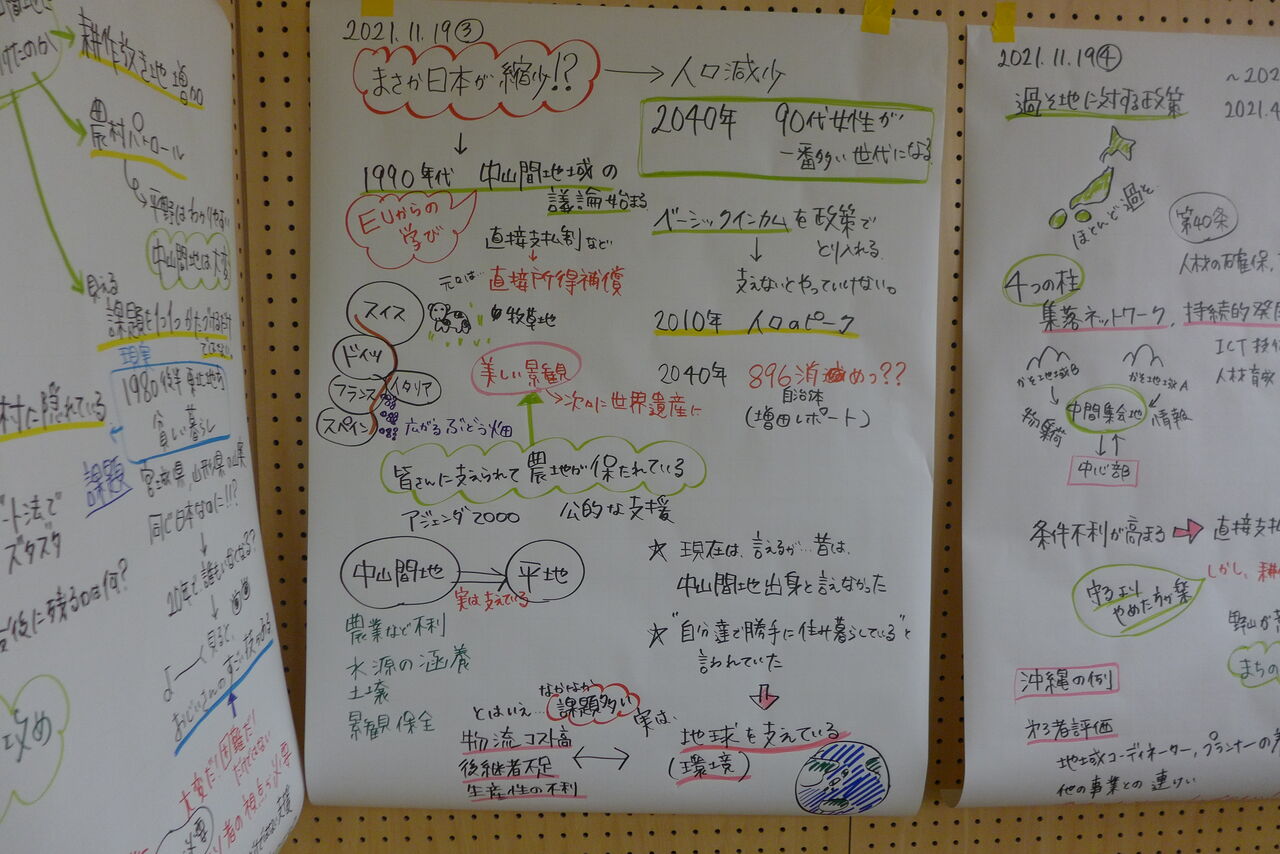 耕作放き地増加
農村パトロール
平野はわかりやすい
中山間地は大変
見える
課題を1つ1つかたづけるだけ
ではない。
現実
1980後半 東北地方
貧しい暮らし
村に隠れている
課題
宮城県,山形県の山奥
同じ日本なのに!!?
ート法で
ズタズタ
20年で誰もいなくなる?
後に残るのは何?
よーく見ると、
おじいさんのすごい技がある
攻め
大変だ!困難だ!
だけではない
者の視点が必要
2021.11.19③
まさか日本が縮少!?
人口減少
2040年 90代女性が
一番多い世代になる
1990年代 中山間地域の
議論始まる
EUからの
学び
直接支払制など
元々は…直接所得補償
牧草地
スイス
ドイツ
フランス
イタリア
スペイン
広がるぶどう畑
美しい景観
次々に世界遺産に
皆さんに支えられて農地が保たれている
アジェンダ2000 公的な支援
ベーシックインカムを政策で
とり入れる
支えないとやっていけない。
2010年 人口のピーク
2040年 896消めつ??
自治体
(増田レポート)
中山間地
平地
実は支えている
農業など利
水源の涵養
土壌
景観保全
☆ 現在は、言えるが…昔は、
中山間地出身と言えなかった
☆ "自分達で勝手に住み暮らしている"と
言われていた
なかなか
とはいえ…課題多い
物流コスト高
後継者不足
生産性の不利
実は、
地球を支えている
(環境)
2021.11.19④
過そ地に対する政策
~202
2021.4
ほとんど過そ
第40条
人材の確保,
4つの柱
集落ネットワーク,持続的発展
ICT技
人材育成
かそ地域B
かそ地域A
物 集荷
中間集会地
情報
中心部
条件不利が高まる
直接支払
しかし、耕
守るより
やめた方が楽
野山が
まちの
沖縄の例
第3者評価
地域コーディネーター,プランナーの
他の事業との連けい